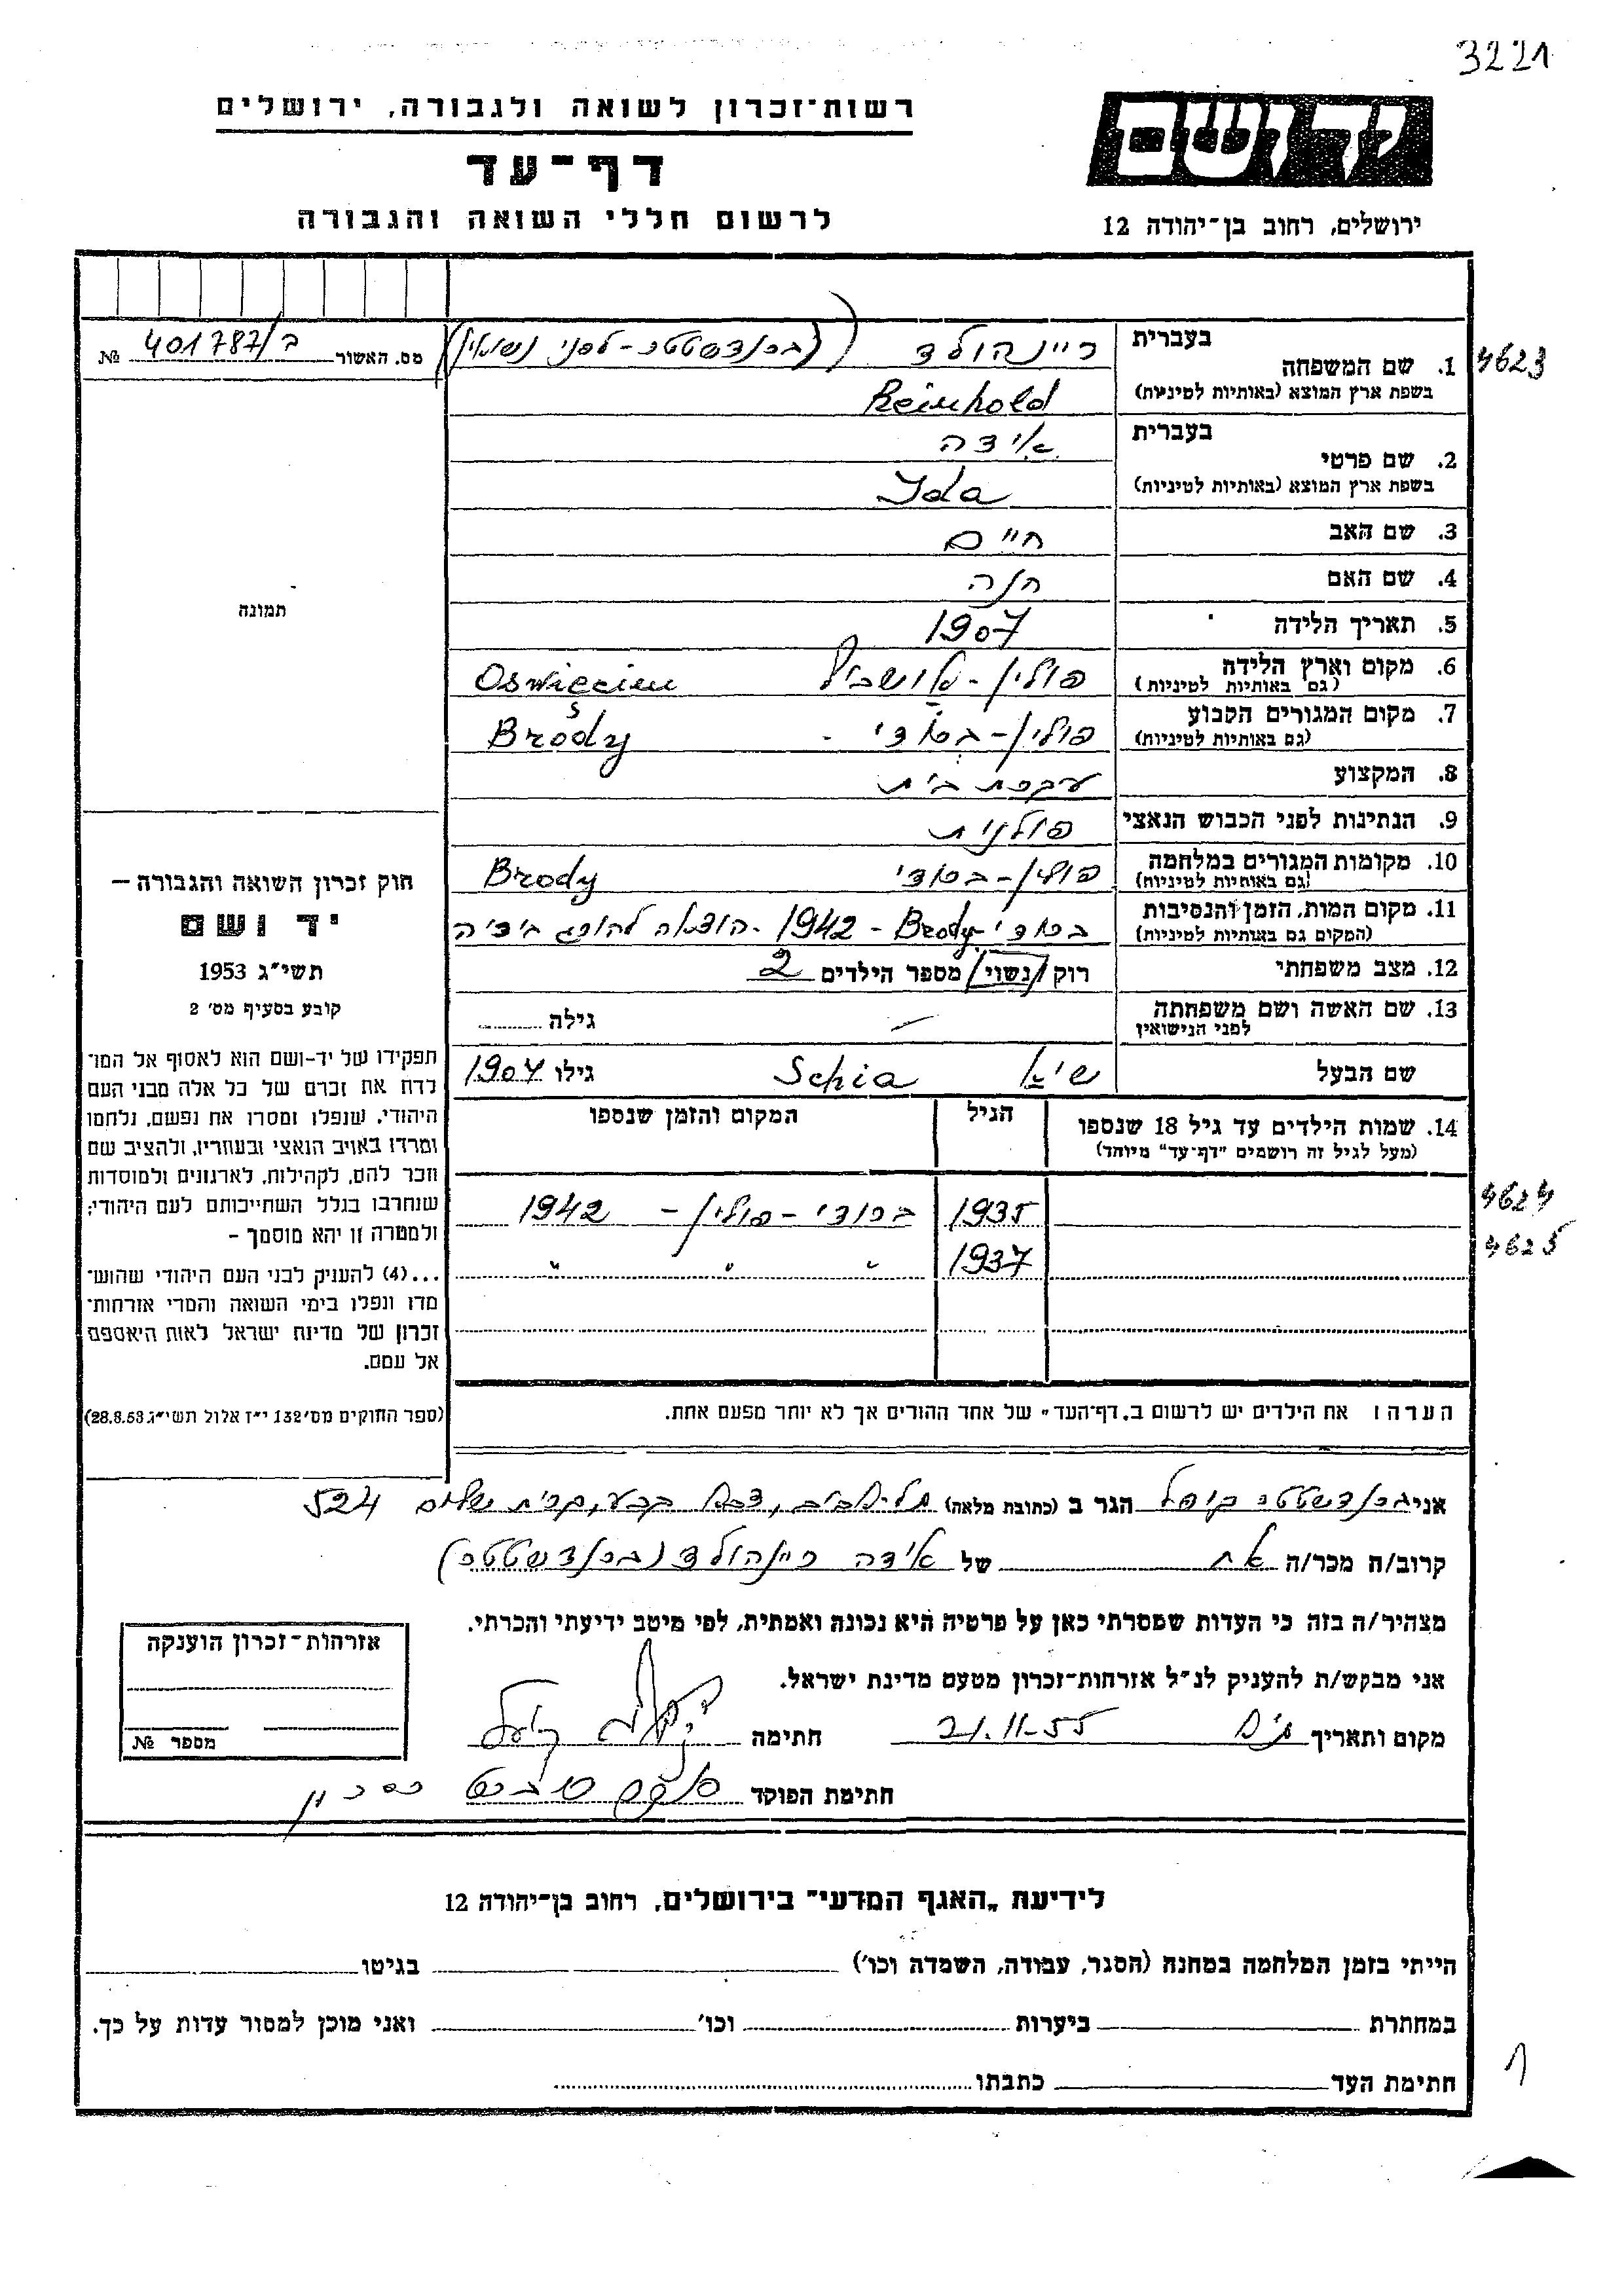 3221
רשות־זכרון לשואה ולגבורה, ירושלים
יד ושם
דף־עד
לרשום חללי השואה והגבורה
ירושלים, רחוב בן־יהודה 12
מס. האשור ב/401787 №
1. שם המשפחה בעברית ריינהולד (ברנדשטטר - לפני נשואין) 4623
בשפת ארץ המוצא (באותיות לטיניות) Reinhold
2. שם פרטי בעברית אידה
בשפת ארץ המוצא (באותיות לטיניות) Ida
3. שם האב חיים
4. שם האם חנה
5. תאריך הלידה 1907
6. מקום וארץ הלידה (גם באותיות לטיניות) פולין - Oswięcim
7. מקום המגורים הקבוע (גם באותיות לטיניות) פולין - ברודי - Brody
8. המקצוע עקרת בית
9. הנתינות לפני הכבוש הנאצי פולנית
10. מקומות המגורים במלחמה (גם באותיות לטיניות) פולין - ברודי Brody
11. מקום המות, הזמן והנסיבות (המקום גם באותיות לטיניות) ברודי - Brody - 1942 - הוצאה להורג ביריה
12. מצב משפחתי רוק / נשוי / מספר הילדים 2
13. שם האשה ושם משפחתה לפני הנישואין — גילה
שם הבעל שיא Schia גילו 1904
14. שמות הילדים עד גיל 18 שנספו הגיל המקום והזמן שנספו
(מעל לגיל זה רושמים "דף־עד" מיוחד)
1935 ברודי - פולין - 1942 4624
1937 " " " 4625
הערה: את הילדים יש לרשום ב„דף־העד" של אחד ההורים אך לא יותר מפעם אחת.
תמונה
חוק זכרון השואה והגבורה —
יד ושם
תשי"ג 1953
קובע בסעיף מס' 2
תפקידו של יד-ושם הוא לאסוף אל המו־
לדת את זכרם של כל אלה מבני העם
היהודי, שנפלו ומסרו את נפשם, נלחמו
ומרדו באויב הנאצי ובעוזריו, ולהציב שם
וזכר להם, לקהילות, לארגונים ולמוסדות
שנחרבו בגלל השתייכותם לעם היהודי;
ולמטרה זו יהא מוסמך –
...(4) להעניק לבני העם היהודי שהוש־
מדו ונפלו בימי השואה והמרי אזרחות־
זכרון של מדינת ישראל לאות היאספם
אל עמם.
(ספר החוקים מס' 132 י"ז אלול תשי"ג 28.8.53)
אני ברנדשטטר הגר ב (כתובת מלאה) תל-אביב, שלום 524
קרוב/ה מכר/ה אח של אידה ריינהולד (ברנדשטטר)
מצהיר/ה בזה כי העדות שמסרתי כאן על פרטיה היא נכונה ואמתית, לפי מיטב ידיעתי והכרתי.
אני מבקש/ת להעניק לנ"ל אזרחות־זכרון מטעם מדינת ישראל.
מקום ותאריך ת"א 21.11.55 חתימה
חתימת הפוקד
אזרחות־זכרון הוענקה
מספר №
לידיעת „האגף המדעי" בירושלים, רחוב בן־יהודה 12
הייתי בזמן המלחמה במחנה (הסגר, עבודה, השמדה וכו') בגיטו
במחתרת ביערות וכו' ואני מוכן למסור עדות על כך.
חתימת העד כתבתו
1